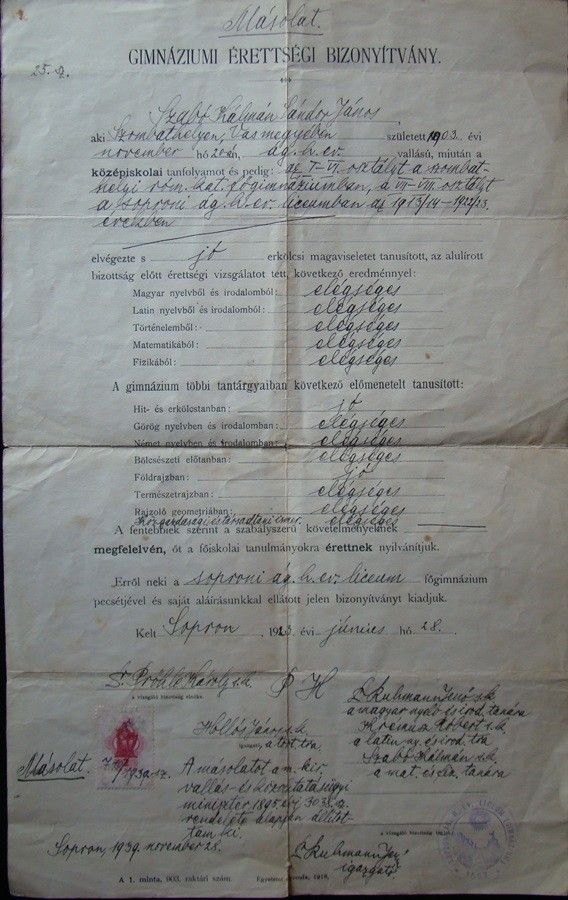 Másolat.
GIMNÁZIUMI ÉRETTSÉGI BIZONYÍTVÁNY.
Szabó Kálmán Sándor János
aki Szombathelyen, Vasmegyében született 1903. évi
november hó 20án, ág. h. ev. vallású, miután a
középiskolai tanfolyamot és pedig: az I-VI. osztályt a szombat-
helyi rom. kat. főgimnáziumban, a VII-VIII. osztályt
a soproni ág. h. ev. líceumban az 1913/14-1922/23.
években
elvégezte s jó erkölcsi magaviseletet tanusított, az alulírott
bizottság előtt érettségi vizsgálatot tett, következő eredménnyel:
Magyar nyelvből és irodalomból: elégséges
Latin nyelvből és irodalomból: elégséges
Történelemből: elégséges
Matematikából: elégséges
Fizikából: elégséges
A gimnázium többi tantárgyaiban következő előmenetelt tanusított:
Hit- és erkölcstanban: jó
Görög nyelvben és irodalomban: elégséges
Német nyelvben és irodalomban: elégséges
Bölcsészeti előtanban: elégséges
Földrajzban: jó
Természetrajzban: elégséges
Rajzoló geometriában: elégséges
Közgazdasági és társadtani ismer. elégséges
A fentebbiek szerint a szabályszerű követelményeknek
megfelelvén, őt a főiskolai tanulmányokra érettnek nyilvánítjuk.
Erről neki a soproni ág. h. ev. líceum főgimnázium
pecsétjével és saját aláírásunkkal ellátott jelen bizonyítványt kiadjuk.
Kelt Sopron, 1923 évi június hó 28.
D. Pröhle Károly s.k. P H
a vizsgáló bizottság elnöke.
D. Ruhmann Jenő s.k.
a magyar nyelv és irod. tanára
Hollós János s.k.
igazgató, a tört. tra
Robert s.k.
a latin ny. és irod. tra
Szabó Kálmán s.k.
a mat. és tanára
Másolat.
A másolatot a m. kir.
vallás és közoktatásügyi
miniszter 1895. évi
rendelete alapján állított-
tam ki.
a vizsgáló bizottság tagjai.
Sopron, 1939. november 28.
D. Ruhmann Jenő
igazgató
A 1. minta, 903. raktári szám.
Egyetemi nyomda, 1918.